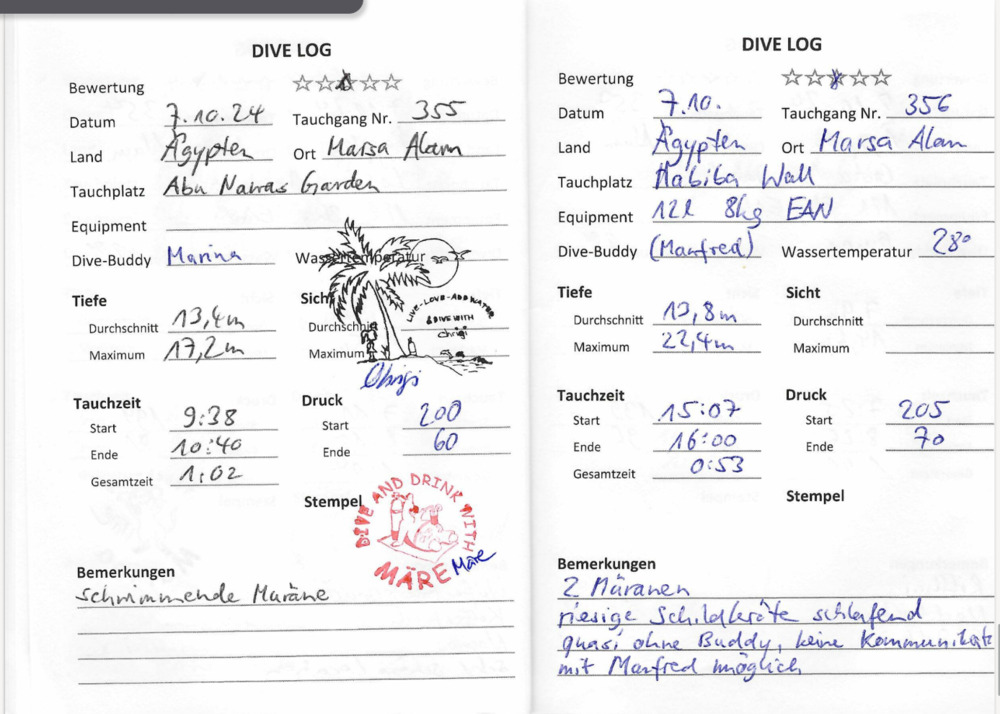 DIVE LOG
Bewertung ☆☆☆☆☆
Datum 7.10.24 Tauchgang Nr. 355
Land Ägypten Ort Marsa Alam
Tauchplatz Abu Nawas Garden
Equipment
Dive-Buddy Marina Wassertemperatur
Tiefe Sicht
Durchschnitt 13,4m Durchschnitt
Maximum 17,2m Maximum
LIVE-LOVE-ADD WATER
& DIVE WITH
chrigi
Chrigi
Tauchzeit Druck
Start 9:38 Start 200
Ende 10:40 Ende 60
Gesamtzeit 1:02
Stempel
DIVE AND DRINK WITH
MÄRE
Märe
Bemerkungen
schwimmende Muräne
DIVE LOG
Bewertung ☆☆☆☆☆
Datum 7.10. Tauchgang Nr. 356
Land Ägypten Ort Marsa Alam
Tauchplatz Habiba Wall
Equipment 12l 8kg EAN
Dive-Buddy (Manfred) Wassertemperatur 28°
Tiefe Sicht
Durchschnitt 13,8m Durchschnitt
Maximum 22,4m Maximum
Tauchzeit Druck
Start 15:07 Start 205
Ende 16:00 Ende 70
Gesamtzeit 0:53
Stempel
Bemerkungen
2 Muränen
riesige Schildkröte schlafend
quasi ohne Buddy, keine Kommunikat
mit Manfred möglich